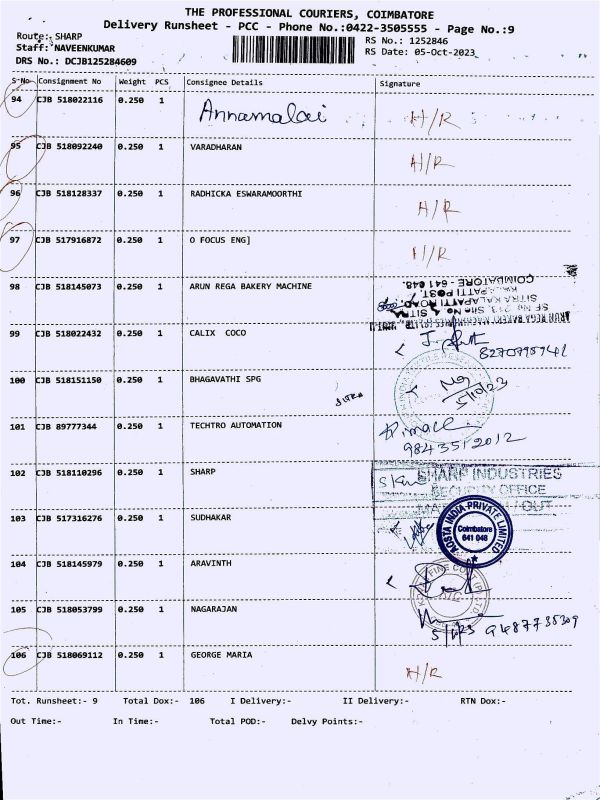 THE PROFESSIONAL COURIERS, COIMBATORE
Delivery Runsheet - PCC - Phone No.:0422-3505555 - Page No.:9
Route: SHARP
RS No.: 1252846
Staff: NAVEENKUMAR
RS Date: 05-Oct-2023
DRS No.: DCJB125284609
S No Consignment No Weight PCS Consignee Details Signature
94 CJB 518022116 0.250 1 Annamalai H/R
95 CJB 518092240 0.250 1 VARADHARAN H/R
96 CJB 518128337 0.250 1 RADHICKA ESWARAMOORTHI H/R
97 CJB 517916872 0.250 1 O FOCUS ENG] H/R
98 CJB 518145073 0.250 1 ARUN REGA BAKERY MACHINE
COIMBATORE - 641 048.
99 CJB 518022432 0.250 1 CALIX COCO
100 CJB 518151150 0.250 1 BHAGAVATHI SPG
5/10/23
101 CJB 89777344 0.250 1 TECHTRO AUTOMATION
9843512012
102 CJB 518110296 0.250 1 SHARP
SHARP INDUSTRIES
SECURITY OFFICE
OUT
103 CJB 517316276 0.250 1 SUDHAKAR
AOSTA INDIA PRIVATE LIMITED
Coimbatore
641 048
104 CJB 518145979 0.250 1 ARAVINTH
105 CJB 518053799 0.250 1 NAGARAJAN
106 CJB 518069112 0.250 1 GEORGE MARIA H/R
Tot. Runsheet:- 9 Total Dox:- 106 I Delivery:- II Delivery:- RTN Dox:-
Out Time:- In Time:- Total POD:- Delvy Points:-